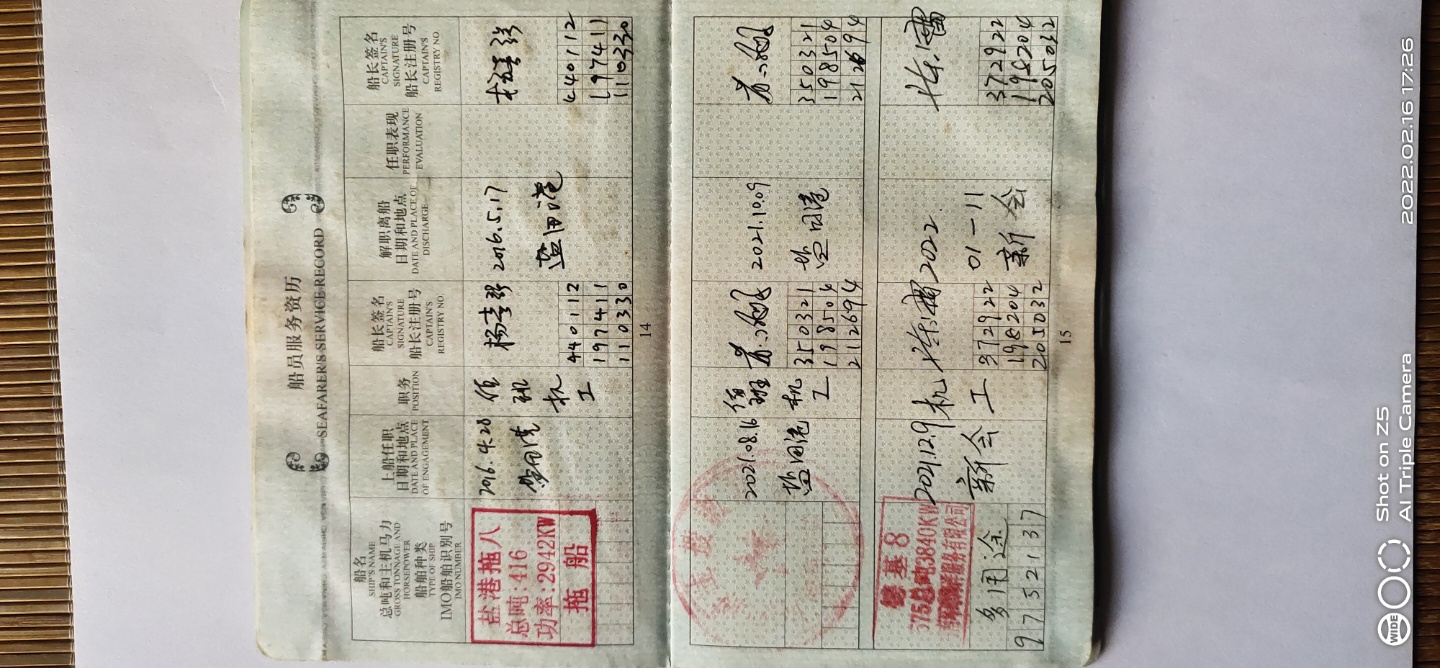 船员服务资历
SEAFARER'S SERVICE RECORD
船名
SHIP'S NAME
总吨和主机马力
GROSS TONNAGE AND
HORSEPOWER
船舶种类
TYPE OF SHIP
IMO船舶识别号
IMO NUMBER
上船任职
日期和地点
DATE AND PLACE
OF ENGAGEMENT
职务
POSITION
船长签名
CAPTAIN'S
SIGNATURE
船长注册号
CAPTAIN'S
REGISTRY NO
解职离船
日期和地点
DATE AND PLACE OF
DISCHARGE
任职表现
PERFORMANCE
EVALUATION
船长签名
CAPTAIN'S
SIGNATURE
船长注册号
CAPTAIN'S
REGISTRY NO
盐港拖八
总吨:416
功率:2942KW
拖 船
2016.4.28
盐田港
值
班
机
工
440112
197411
110330
2016.5.17
盐田港
440112
197411
110330
14
2021.08.16
盐田港
值
班
机
工
350321
198504
212694
2021.10.09
盐田港
350321
198504
212694
基 8
3840KW
服务有限公司
多用途
9752137
2021.12.9
新会
机
工
372922
198204
205032
2022
01-11
新会
372922
198204
205032
15
2022.02.16 17:26
Shot on Z5
AI Triple Camera
WIDE